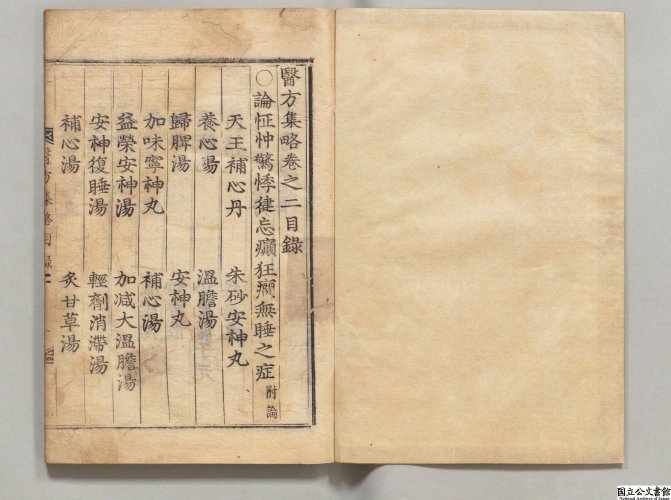 醫方集略卷之二目錄
〇論怔忡驚悸健忘癲狂癎無睡之症 附論
天王補心丹 朱砂安神丸
養心湯 溫膽湯
歸脾湯 安神丸
加味寧神丸 補心湯
益榮安神湯 加减大溫膽湯
安神復睡湯 輕劑消滯湯
補心湯 炙甘草湯
醫方集略目錄二
国立公文書館
National Archives of Japan